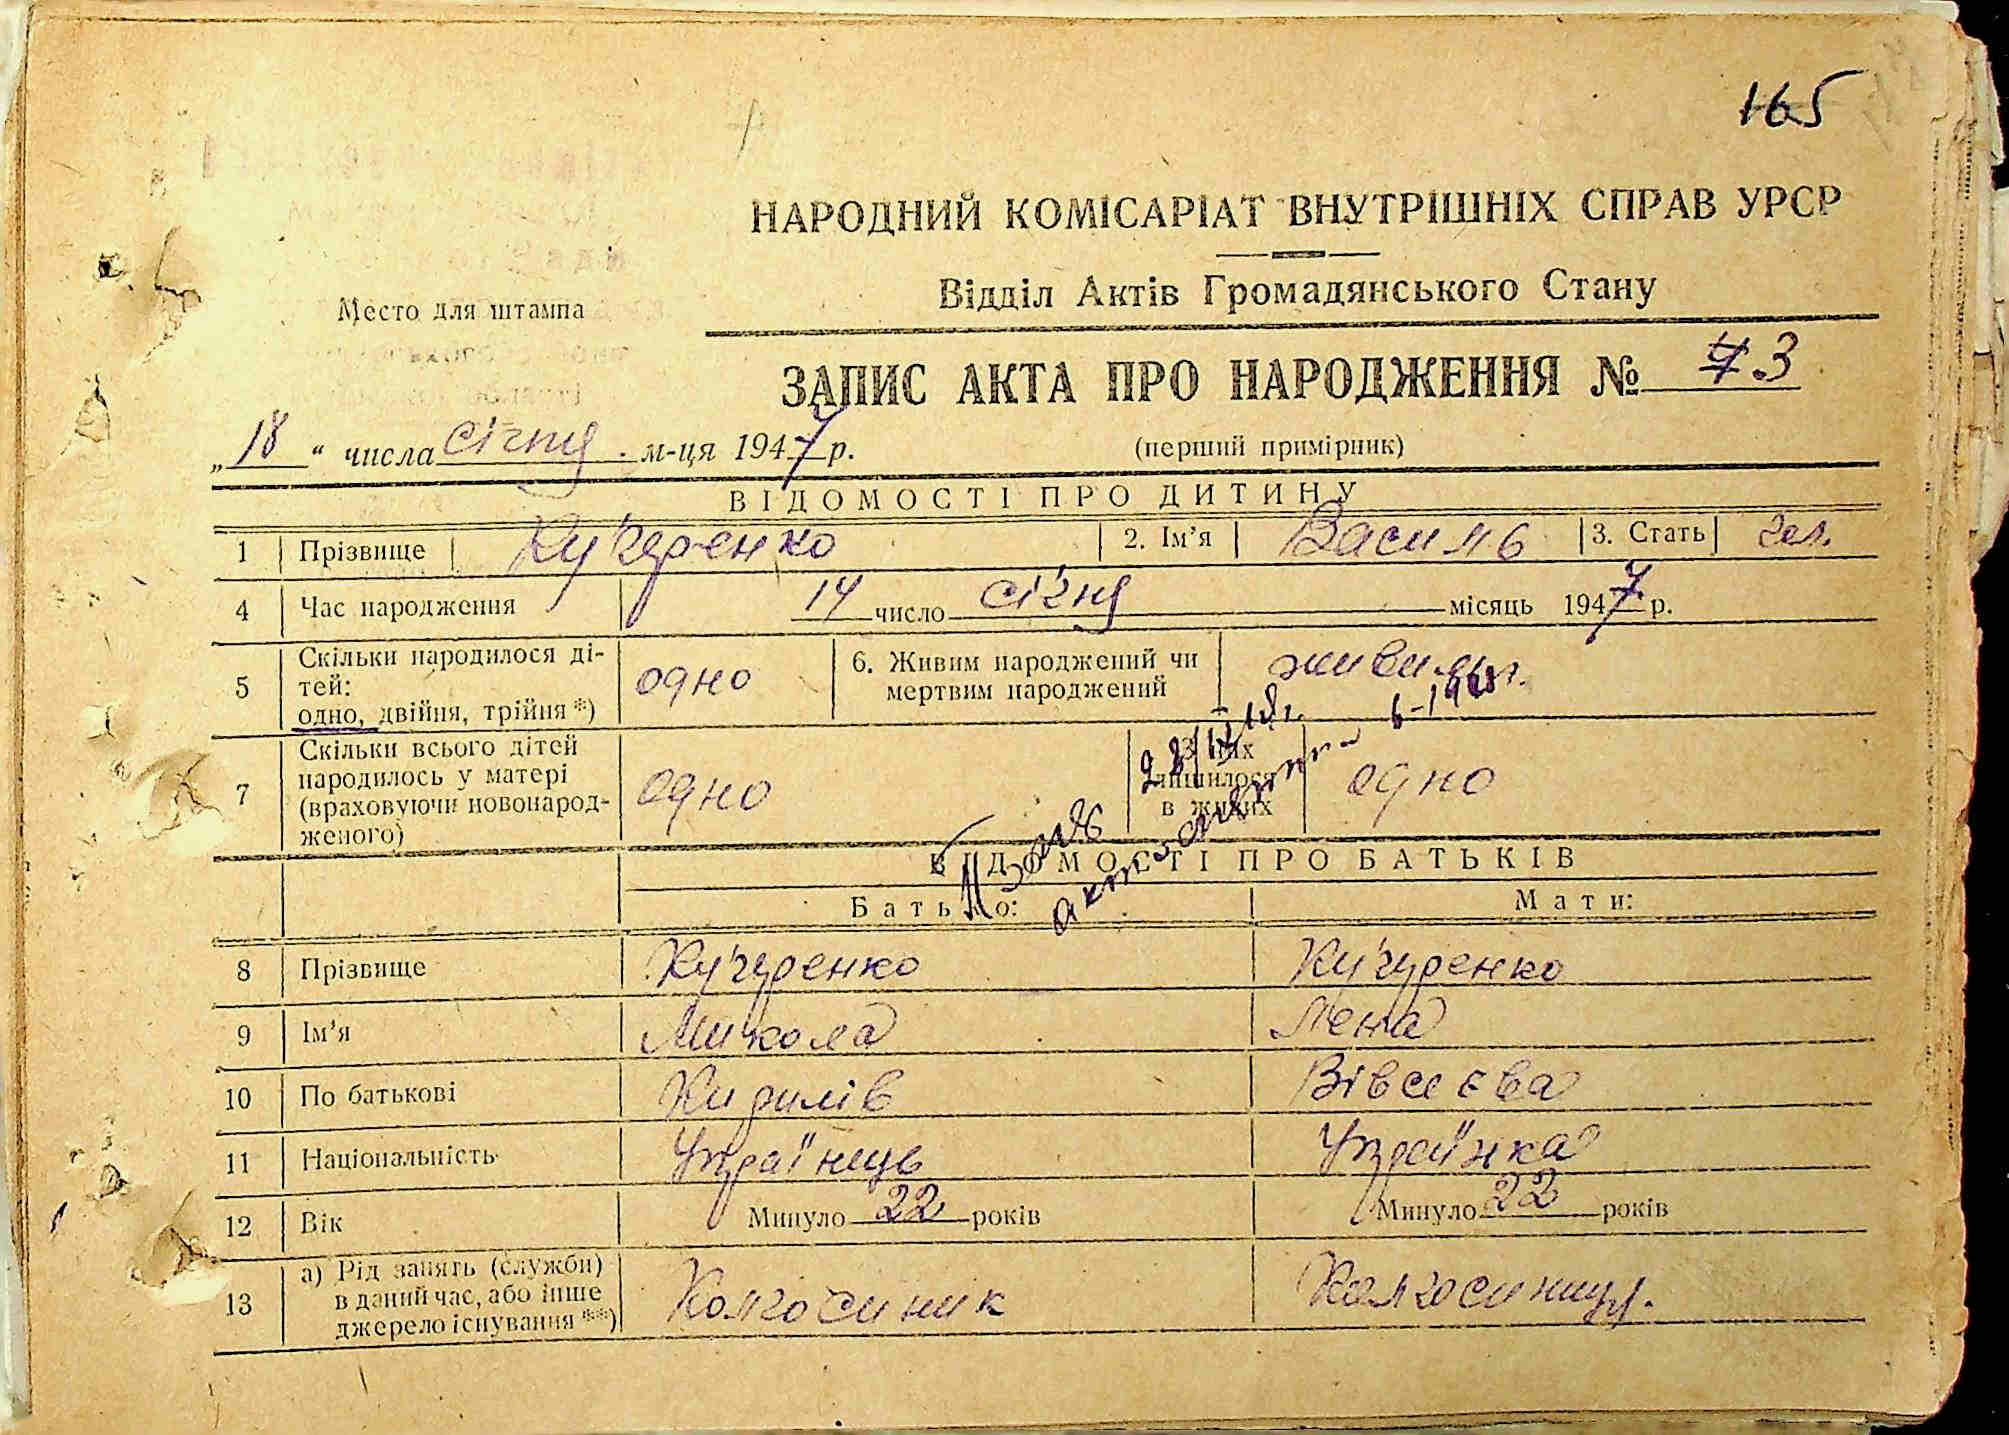 165
НАРОДНИЙ КОМІСАРІАТ ВНУТРІШНІХ СПРАВ УРСР
Відділ Актів Громадянського Стану
Место для штампа
ЗАПИС АКТА ПРО НАРОДЖЕННЯ № 3
„18“ числа січня м-ця 1947 р.
(перший примірник)
ВІДОМОСТІ ПРО ДИТИНУ
1 Прізвище Кучеренко 2. Ім'я Василь 3. Стать чол.
4 Час народження 14 число січня місяць 1947 р.
5 Скільки народилося ді-
тей:
одно, двійня, трійня *) одно 6. Живим народжений чи
мертвим народжений живим
7 Скільки всього дітей
народилось у матері
(враховуючи новонарод-
женого) одно З них
лишилося
в живих одно
ВІДОМОСТІ ПРО БАТЬКІВ
Батько: Мати:
8 Прізвище Кучеренко Кучеренко
9 Ім'я Микола Лена
10 По батькові Кирилів Вівсєєва
11 Національність Українець Українка
12 Вік Минуло 22 років Минуло 22 років
13 а) Рід занять (служби)
в даний час, або інше
джерело існування **) Колгоспник Колгоспниця.